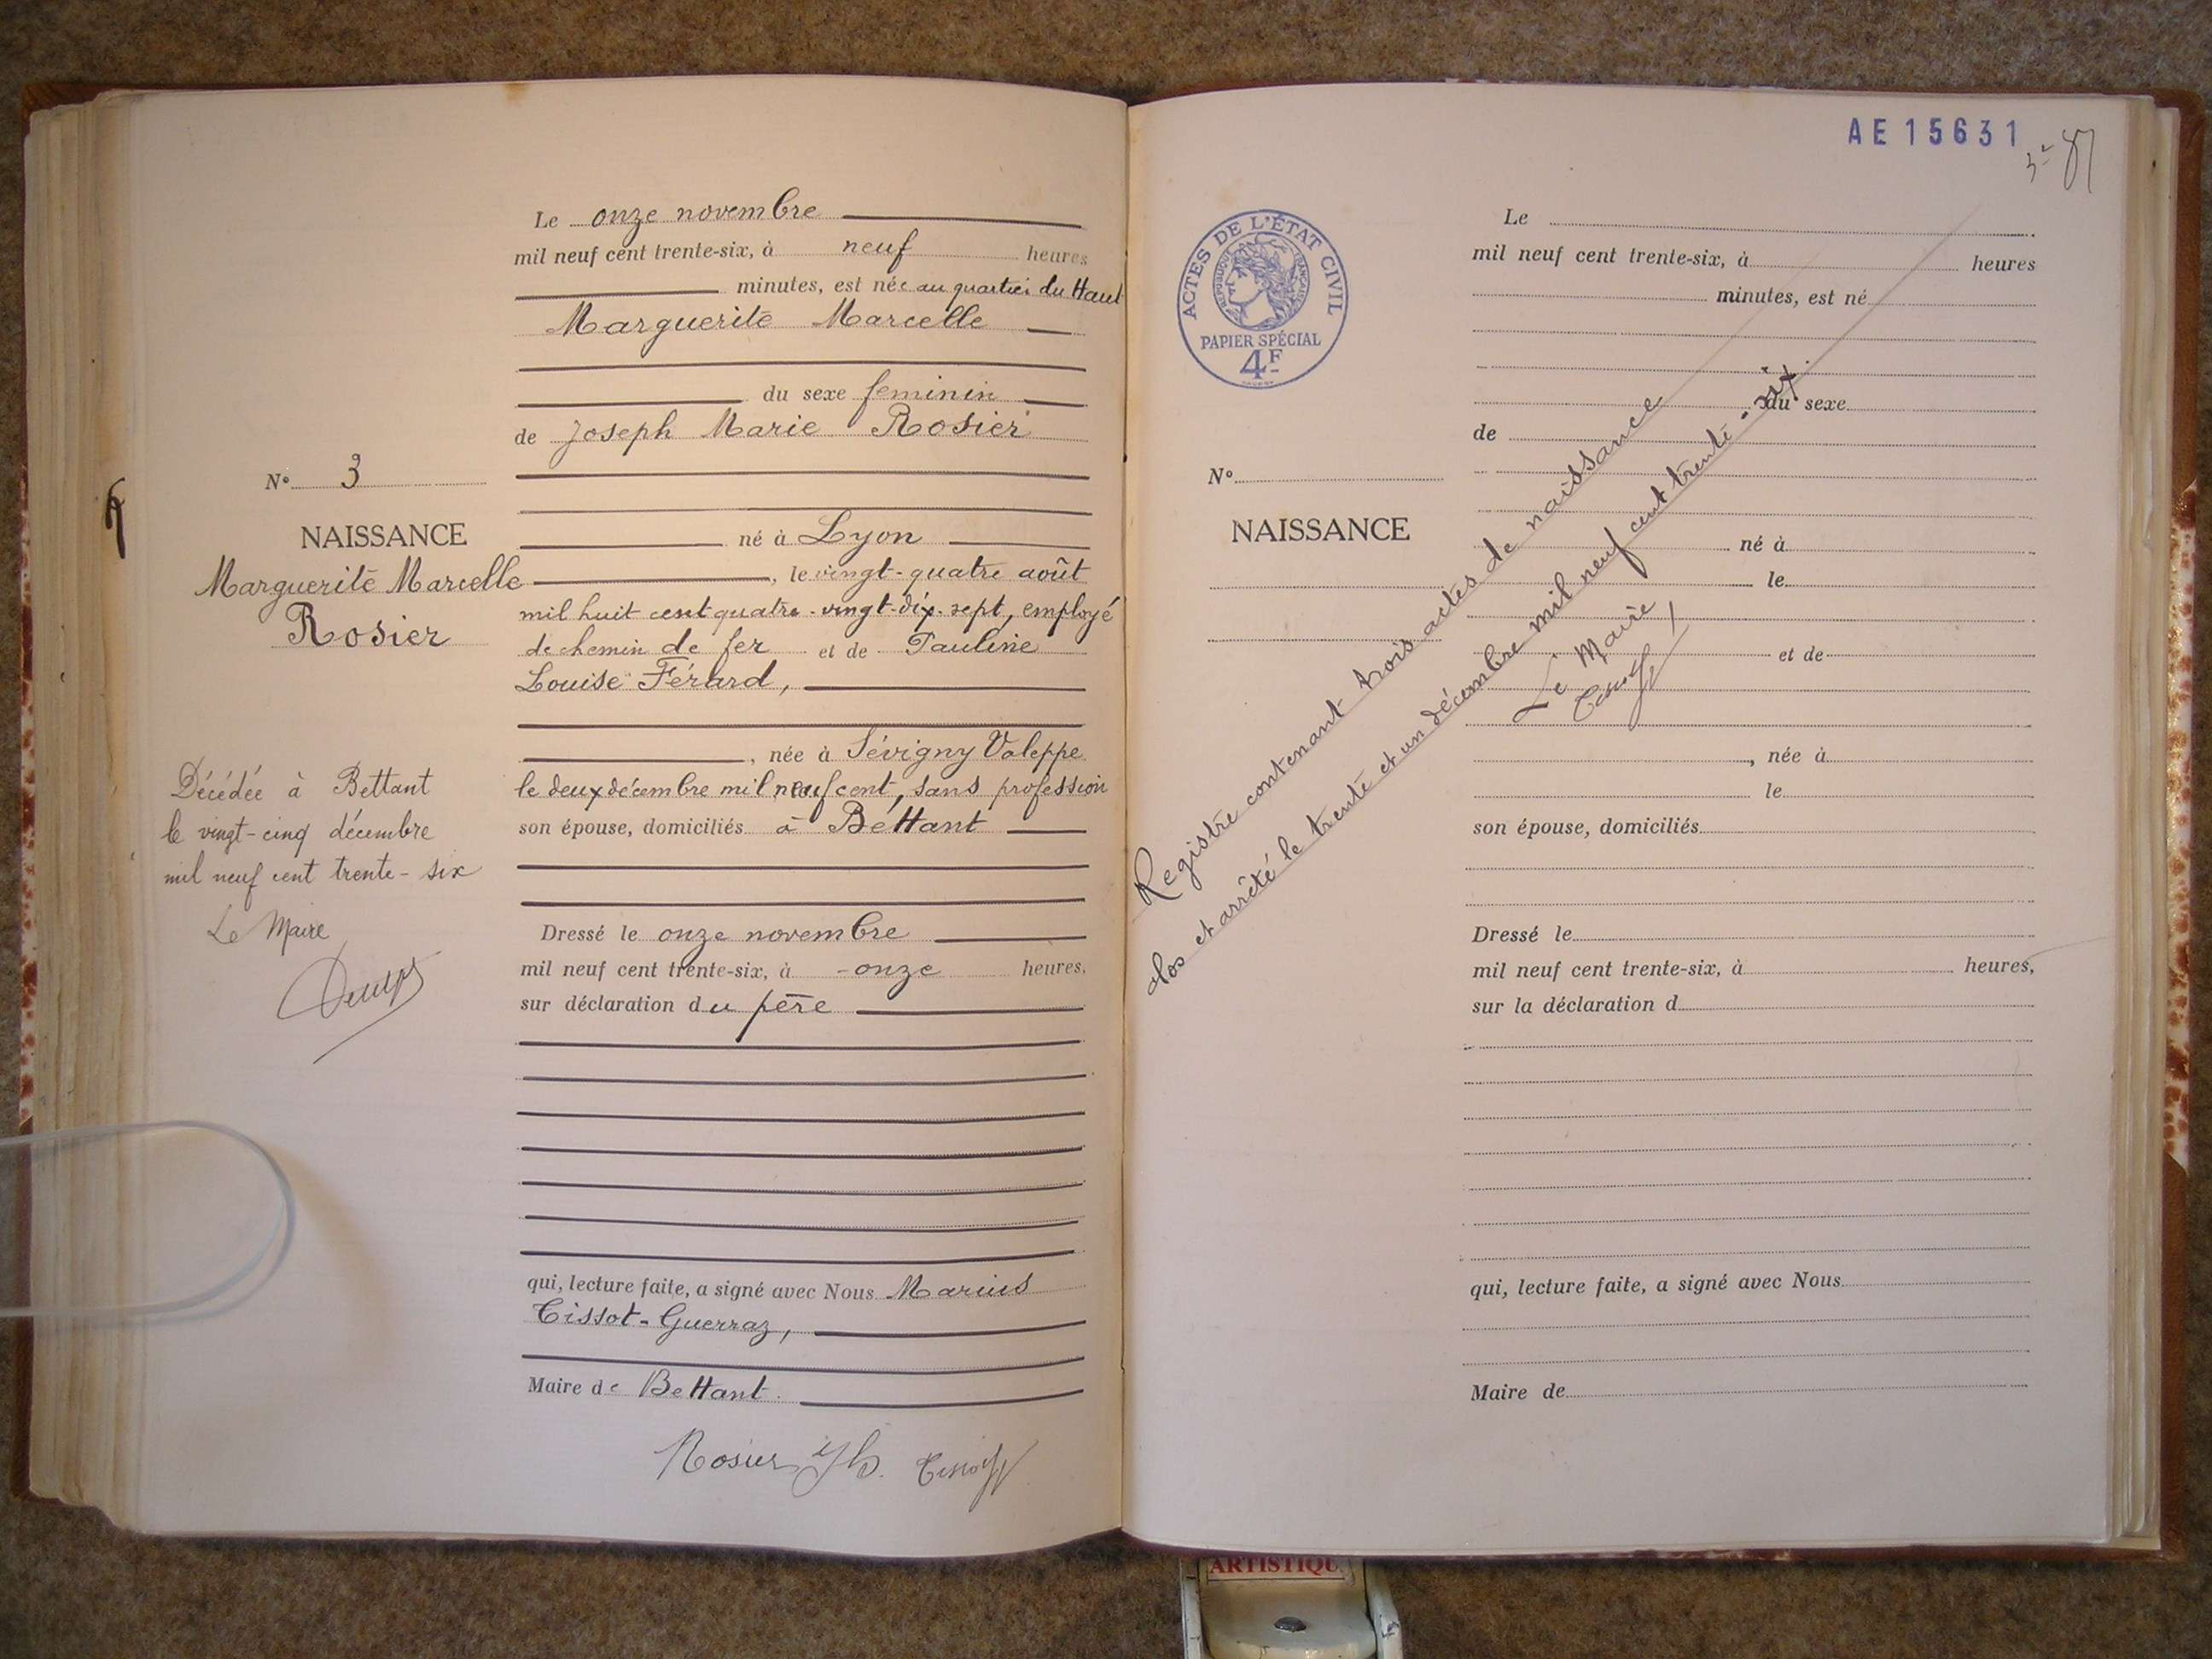 Le onze novembre
mil neuf cent trente-six, à neuf heures
minutes, est née au quartier du Haut
Marguerite Marcelle
du sexe feminin
de Joseph Marie Rosier
N° 3
NAISSANCE
Marguerite Marcelle
Rosier
né à Lyon
, le vingt-quatre août
mil huit cent quatre-vingt-dix-sept, employé
de chemin de fer et de Pauline
Louise Férard,
, née à Sévigny Valeppe
le deux décembre mil neuf cent, sans profession
son épouse, domiciliés à Bettant
Décédée à Bettant
le vingt-cinq décembre
mil neuf cent trente-six
Le Maire
Dressé le onze novembre
mil neuf cent trente-six, à onze heures,
sur déclaration du père
qui, lecture faite, a signé avec Nous Marius
Tissot-Guerraz,
Maire de Bettant.
Rosier
AE 15631
ACTES DE L'ÉTAT CIVIL
REPUBLIQUE FRANÇAISE
PAPIER SPÉCIAL
4F
Le
mil neuf cent trente-six, à heures
minutes, est né
du sexe
de
N°
NAISSANCE
né à
le
et de
, née à
le
son épouse, domiciliés
Dressé le
mil neuf cent trente-six, à heures,
sur la déclaration d
qui, lecture faite, a signé avec Nous
Maire de
Registre contenant trois actes de naissance
clos et arrêté le trente et un décembre mil neuf cent trente-six.
Le Maire
ARTISTIQU